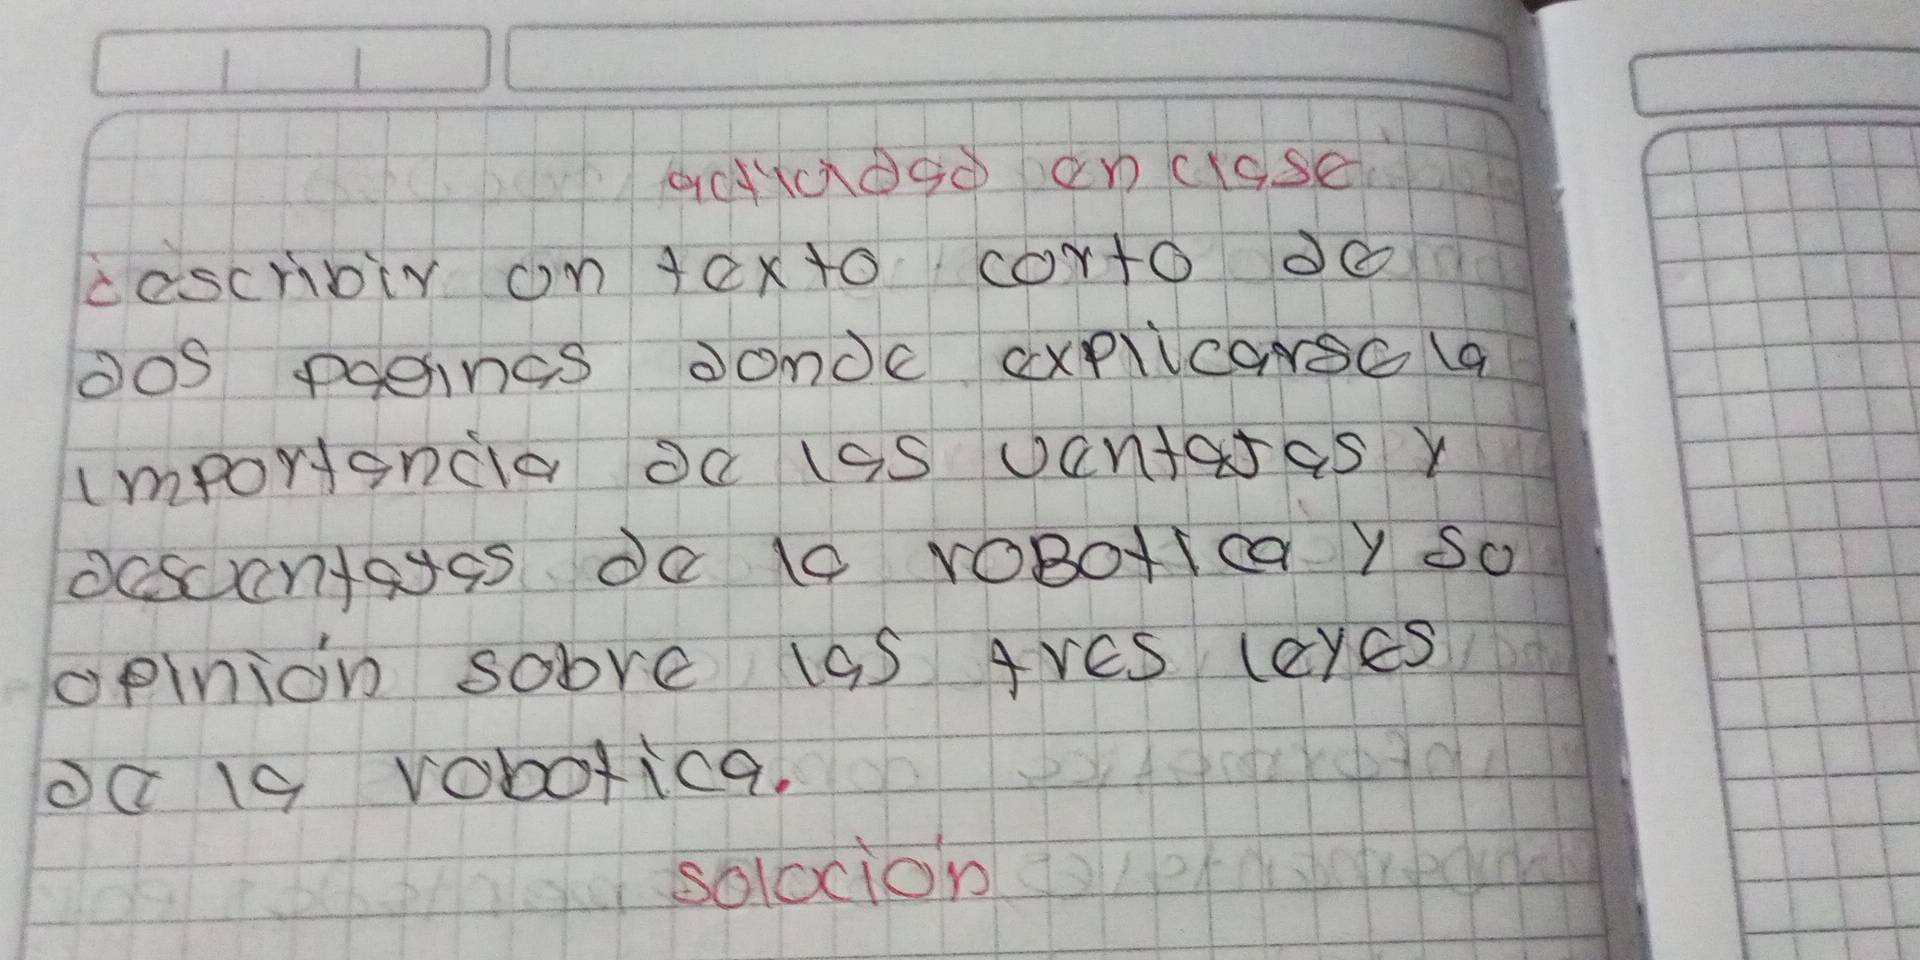 actividad en clase
escribir un texto corto de
dos paginas donde explicarse la
importancia de las ventajas y
desventajas de la roBotica y su
opinión sobre las tres leyes
de la robotica.
solución